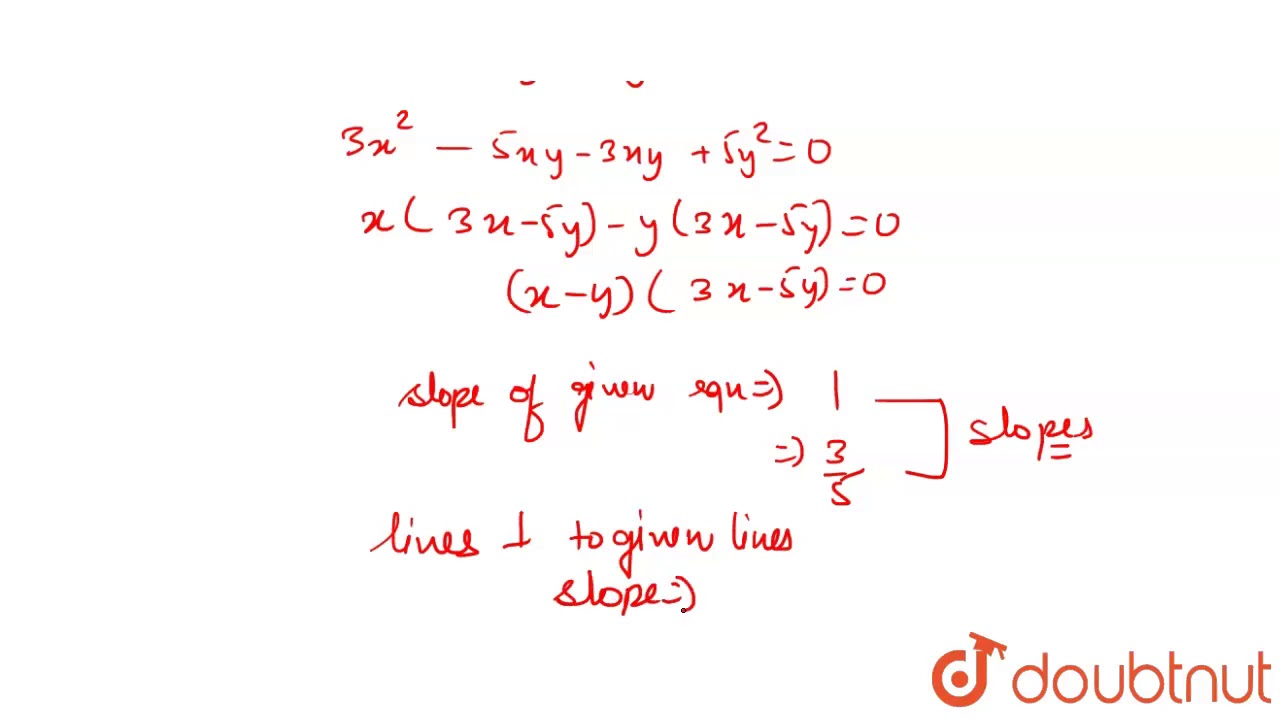 3x² - 5xy - 3xy + 5y² = 0
x(3x - 5y) - y(3x - 5y) = 0
(x - y)(3x - 5y) = 0
slope of given eqn ⇒ 1
⇒ 3/5
slopes
lines ⊥ to given lines
slope ⇒
doubtnut